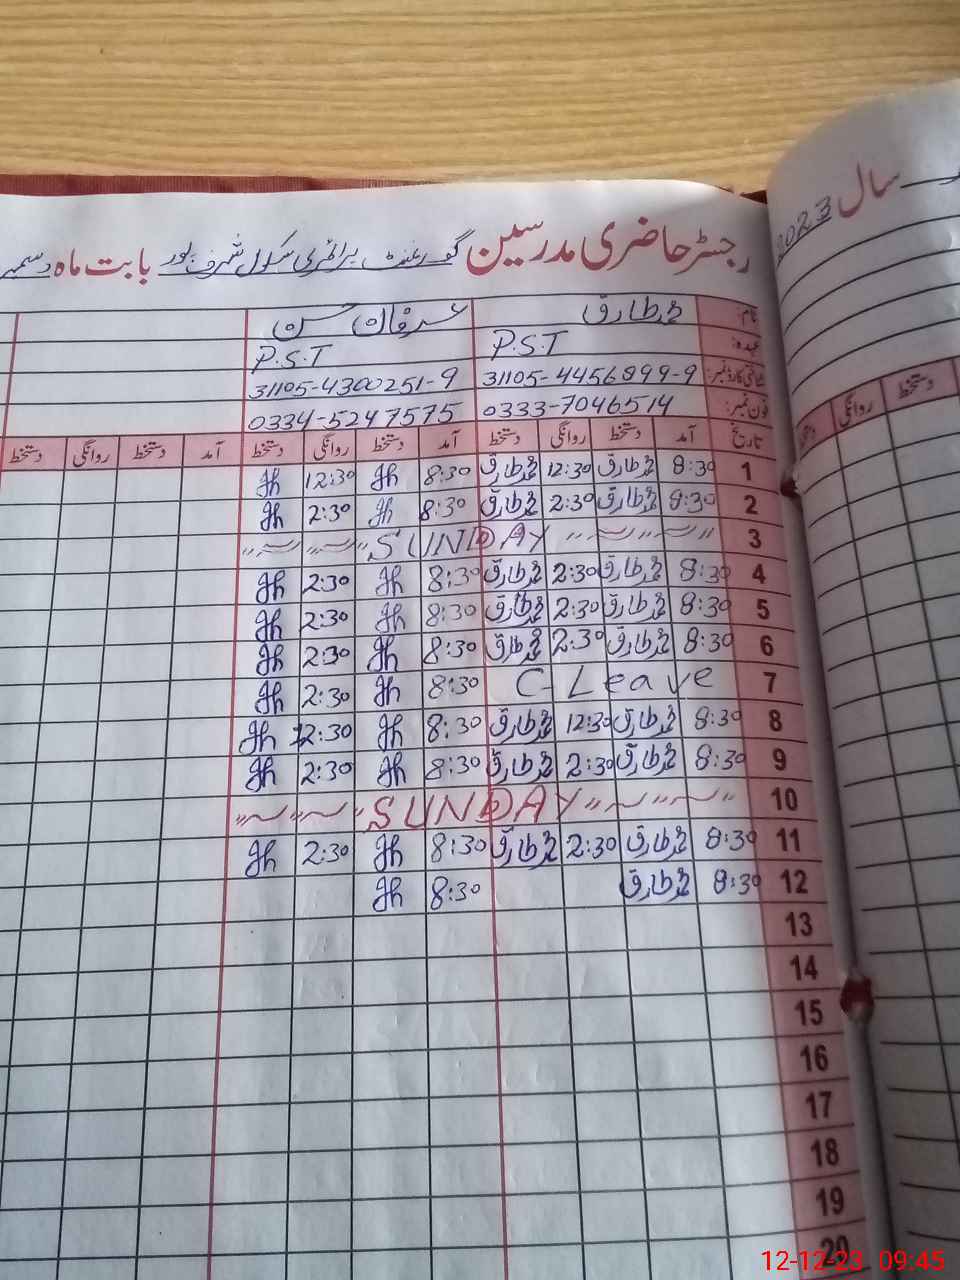 سال 2023
رجسٹر حاضری مدرسین گورنمنٹ پرائمری سکول شرف پور بابت ماہ دسمبر
نام: محمد طارق عرفان حسن
عہدہ: P.S.T P.S.T
شناختی کارڈ نمبر: 31105-4456899-9 31105-4300251-9
فون نمبر: 0333-7046514 0334-5247575
تاریخ آمد دستخط روانگی دستخط آمد دستخط روانگی دستخط آمد دستخط روانگی دستخط
دستخط روانگی دستخط
1 8:30 محمد طارق 12:30 محمد طارق 8:30 12:30
2 8:30 محمد طارق 2:30 محمد طارق 8:30 2:30
3 SUNDAY
4 8:30 محمد طارق 2:30 محمد طارق 8:30 2:30
5 8:30 محمد طارق 2:30 محمد طارق 8:30 2:30
6 8:30 محمد طارق 2:30 محمد طارق 8:30 2:30
7 C-Leave 8:30 2:30
8 8:30 محمد طارق 12:30 محمد طارق 8:30 12:30
9 8:30 محمد طارق 2:30 محمد طارق 8:30 2:30
10 SUNDAY
11 8:30 محمد طارق 2:30 محمد طارق 8:30 2:30
12 8:30 محمد طارق 8:30
13
14
15
16
17
18
19
20
12-12-23 09:45